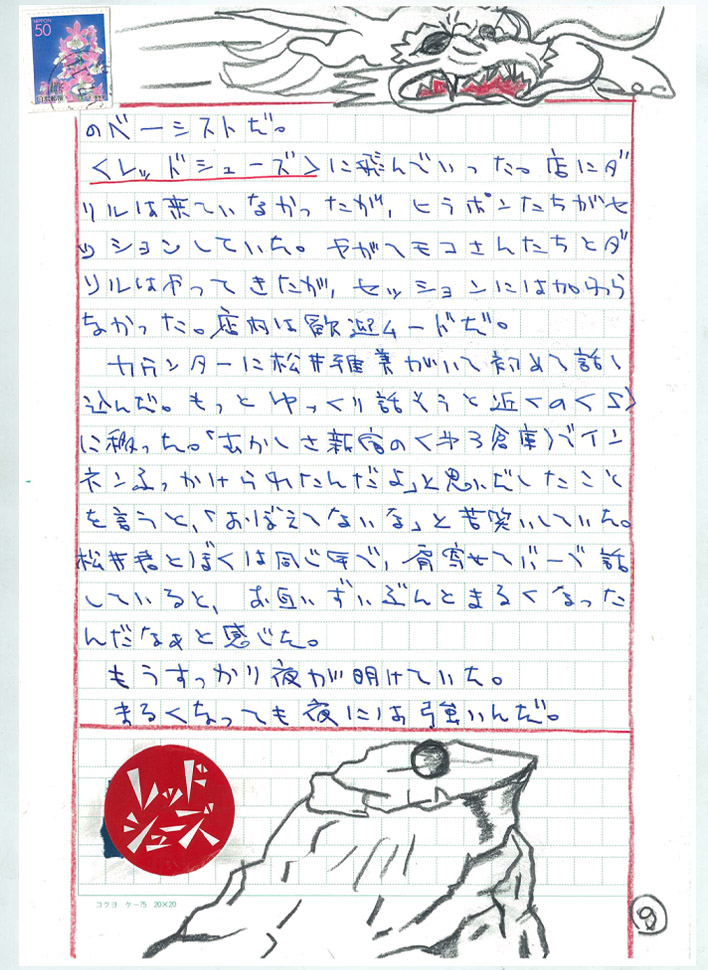 NIPPON
50
日本郵便
のベーシストだ。
〈レッドシューズ〉に飛んでいった。店にダ
リルは来ていなかったが、ヒラポンたちがセ
ッションしていた。やがてモコさんたちとダ
リルはやってきたが、セッションには加わら
なかった。店内は歓迎ムードだ。
カウンターに松井雅美がいて初めて話し
込んだ。もっとゆっくり話そうと近くの〈S〉
に移った。「むかしさ新宿の〈第3倉庫〉でイン
ネンふっかけられたんだよ」と思いだしたこと
を言うと、「おぼえてないな」と苦笑いしていた。
松井君とぼくは同じ年で、肩寄せてバーで話
していると、お互いずいぶんとまるくなった
んだなぁと感じた。
もうすっかり夜が明けていた。
まるくなっても夜には強いんだ。
レッド
シューズ
コクヨ ケー75 20×20
9